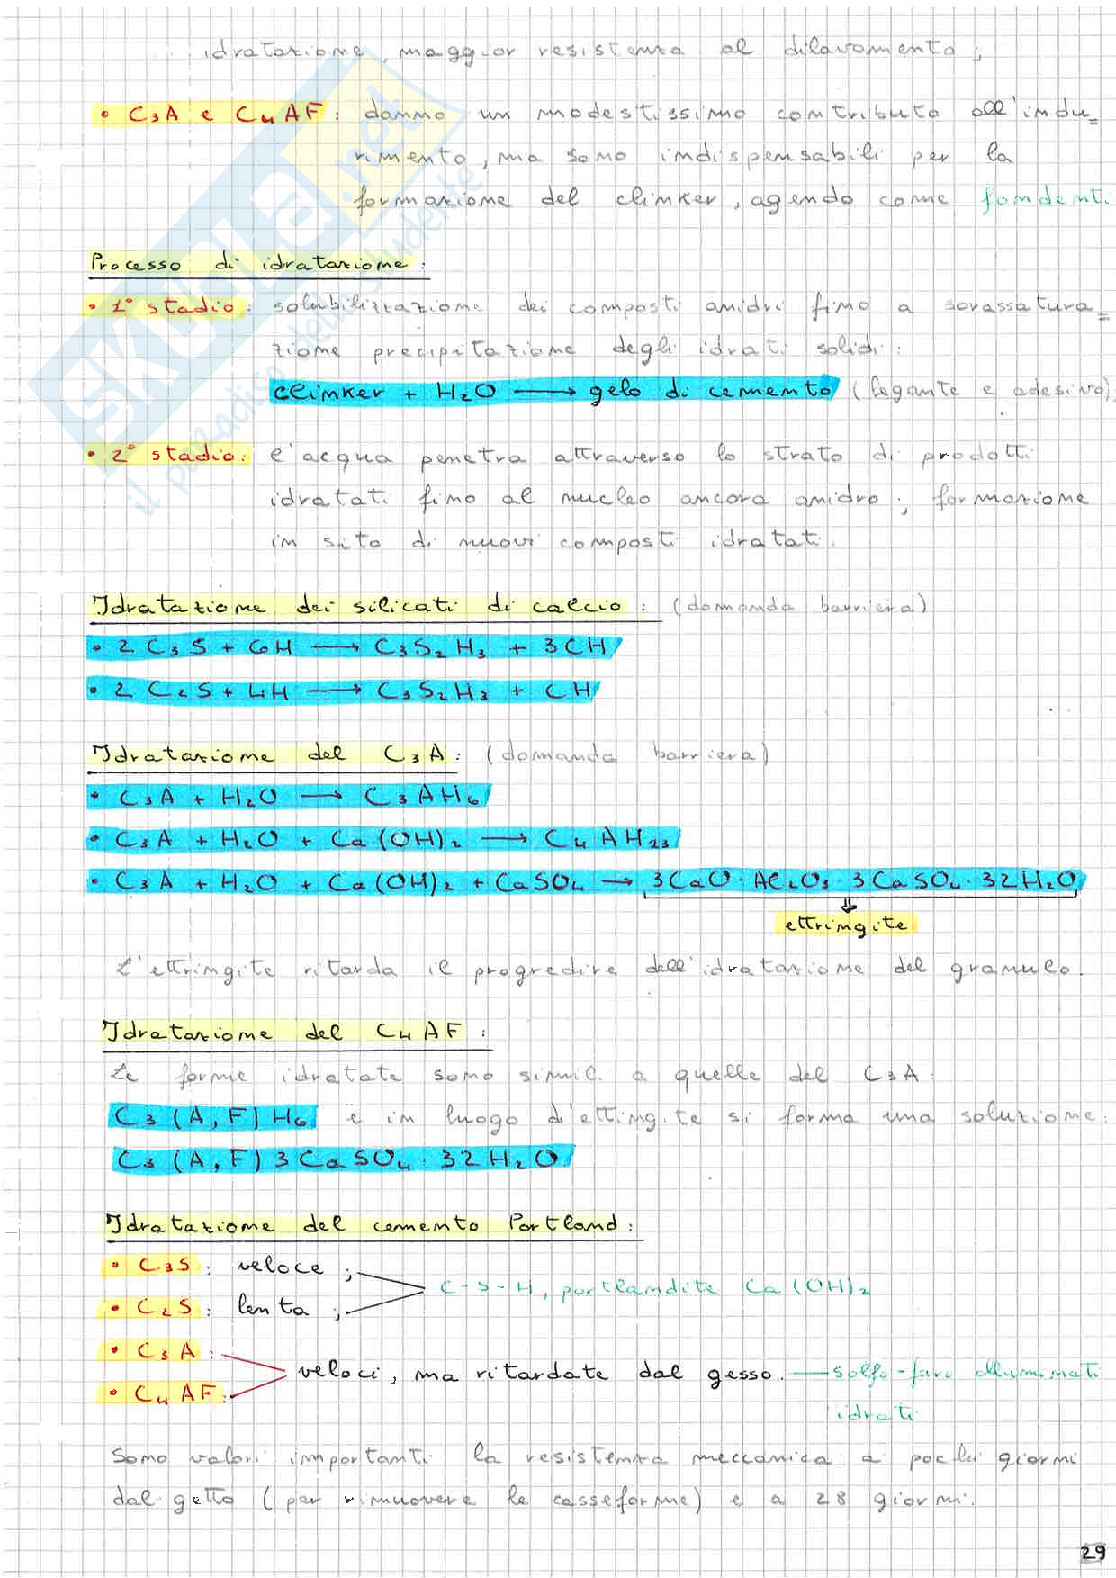 idratazione, maggior resistenza al dilavamento;
• C₃A e C₄AF: danno un modestissimo contributo all'indu=
rimento, ma sono indispensabili per la
formazione del clinker, agendo come fondenti
Processo di idratazione:
• 1° stadio: solubilizzazione dei composti anidri fino a sovassatura=
zione precipitazione degli idrati solidi:
clinker + H₂O → gelo di cemento (legante e adesivo).
• 2° stadio: l'acqua penetra attraverso lo strato di prodotti
idratati fino al nucleo ancora anidro; formazione
in sito di nuovi composti idratati.
Idratazione dei silicati di calcio: (domanda barriera)
• 2 C₃S + 6H → C₃S₂H₃ + 3CH
• 2 C₂S + 4H → C₃S₂H₃ + CH
Idratazione del C₃A: (domanda barriera)
• C₃A + H₂O → C₃AH₆
• C₃A + H₂O + Ca(OH)₂ → C₄AH₂₃
• C₃A + H₂O + Ca(OH)₂ + CaSO₄ → 3CaO·Al₂O₃·3CaSO₄·32H₂O
⇓
ettringite
L'ettringite ritarda il progredire dell'idratazione del granulo.
Idratazione del C₄AF:
Le forme idratate sono simili a quelle del C₃A:
C₃(A,F)H₆ e in luogo di ettingite si forma una soluzione:
C₃(A,F)3CaSO₄·32H₂O
Idratazione del cemento Portland:
• C₃S: veloce;
C-S-H, portlandite Ca(OH)₂
• C₂S: lenta;
• C₃A:
veloci, ma ritardate dal gesso. — solfo-ferri alluminati
• C₄AF:
idrati
Sono valori importanti la resistenza meccanica a pochi giorni
dal getto (per rimuovere le casseforme) e a 28 giorni.
29
SKUOLA.net